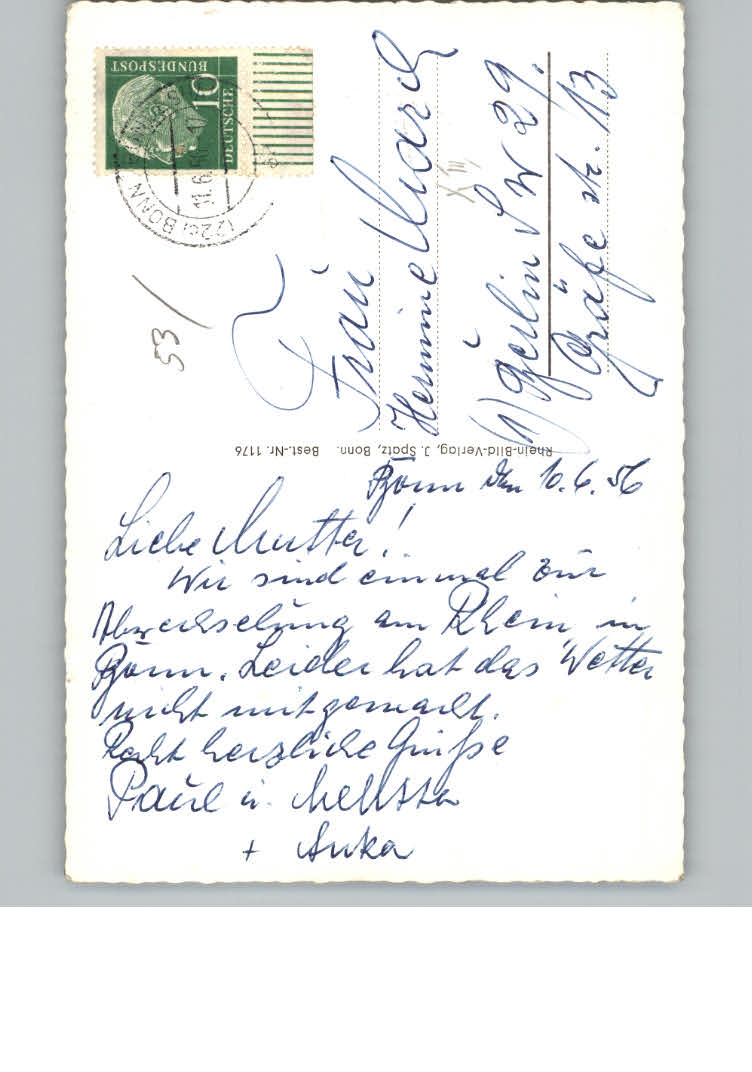 Bonn den 10.6.56
Liebe Mutter!
Wir sind einmal zur
Abwechselung am Rhein in
Bonn. Leider hat das Wetter
nicht mitgemacht.
Recht herzliche Grüße
Paul u.
+ Anka
Frau
Hermine
(1) Berlin SW 29.
Gräfe str. 13
XIII
53/
Rhein-Bild-Verlag, J. Spatz, Bonn. Best.-Nr. 1176
DEUTSCHE
BUNDESPOST
10
(22c) BONN
11.6.56